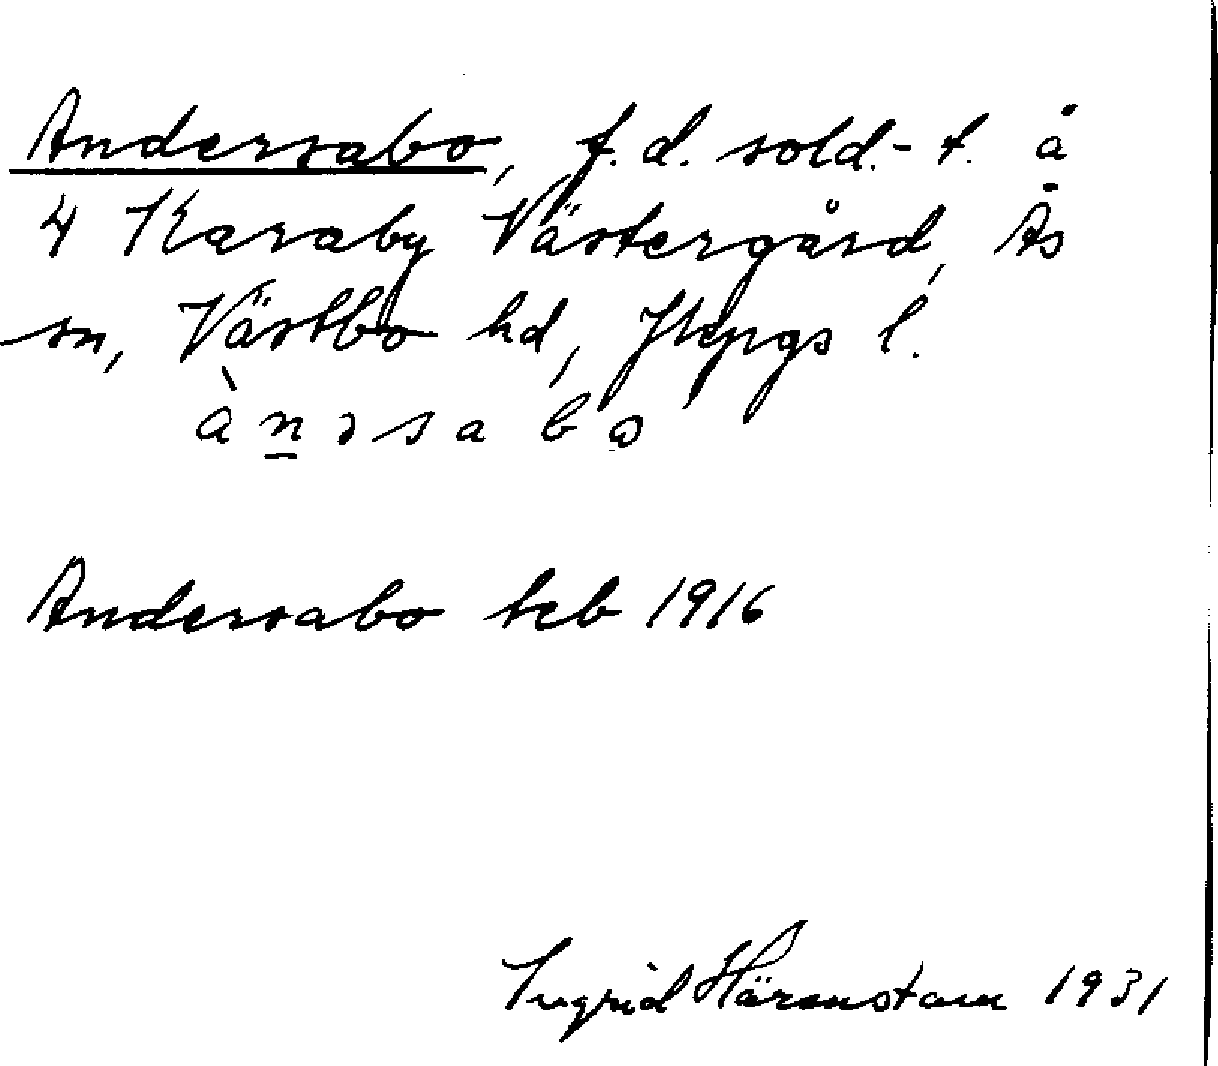 Andersabo, f.d. sold.-t. å
4 Karaby Västergård, Ås
sn, Västbo hd, Jkpgs l.
ànəsabo
Andersabo keb 1916
Ingrid Härenstam 1931